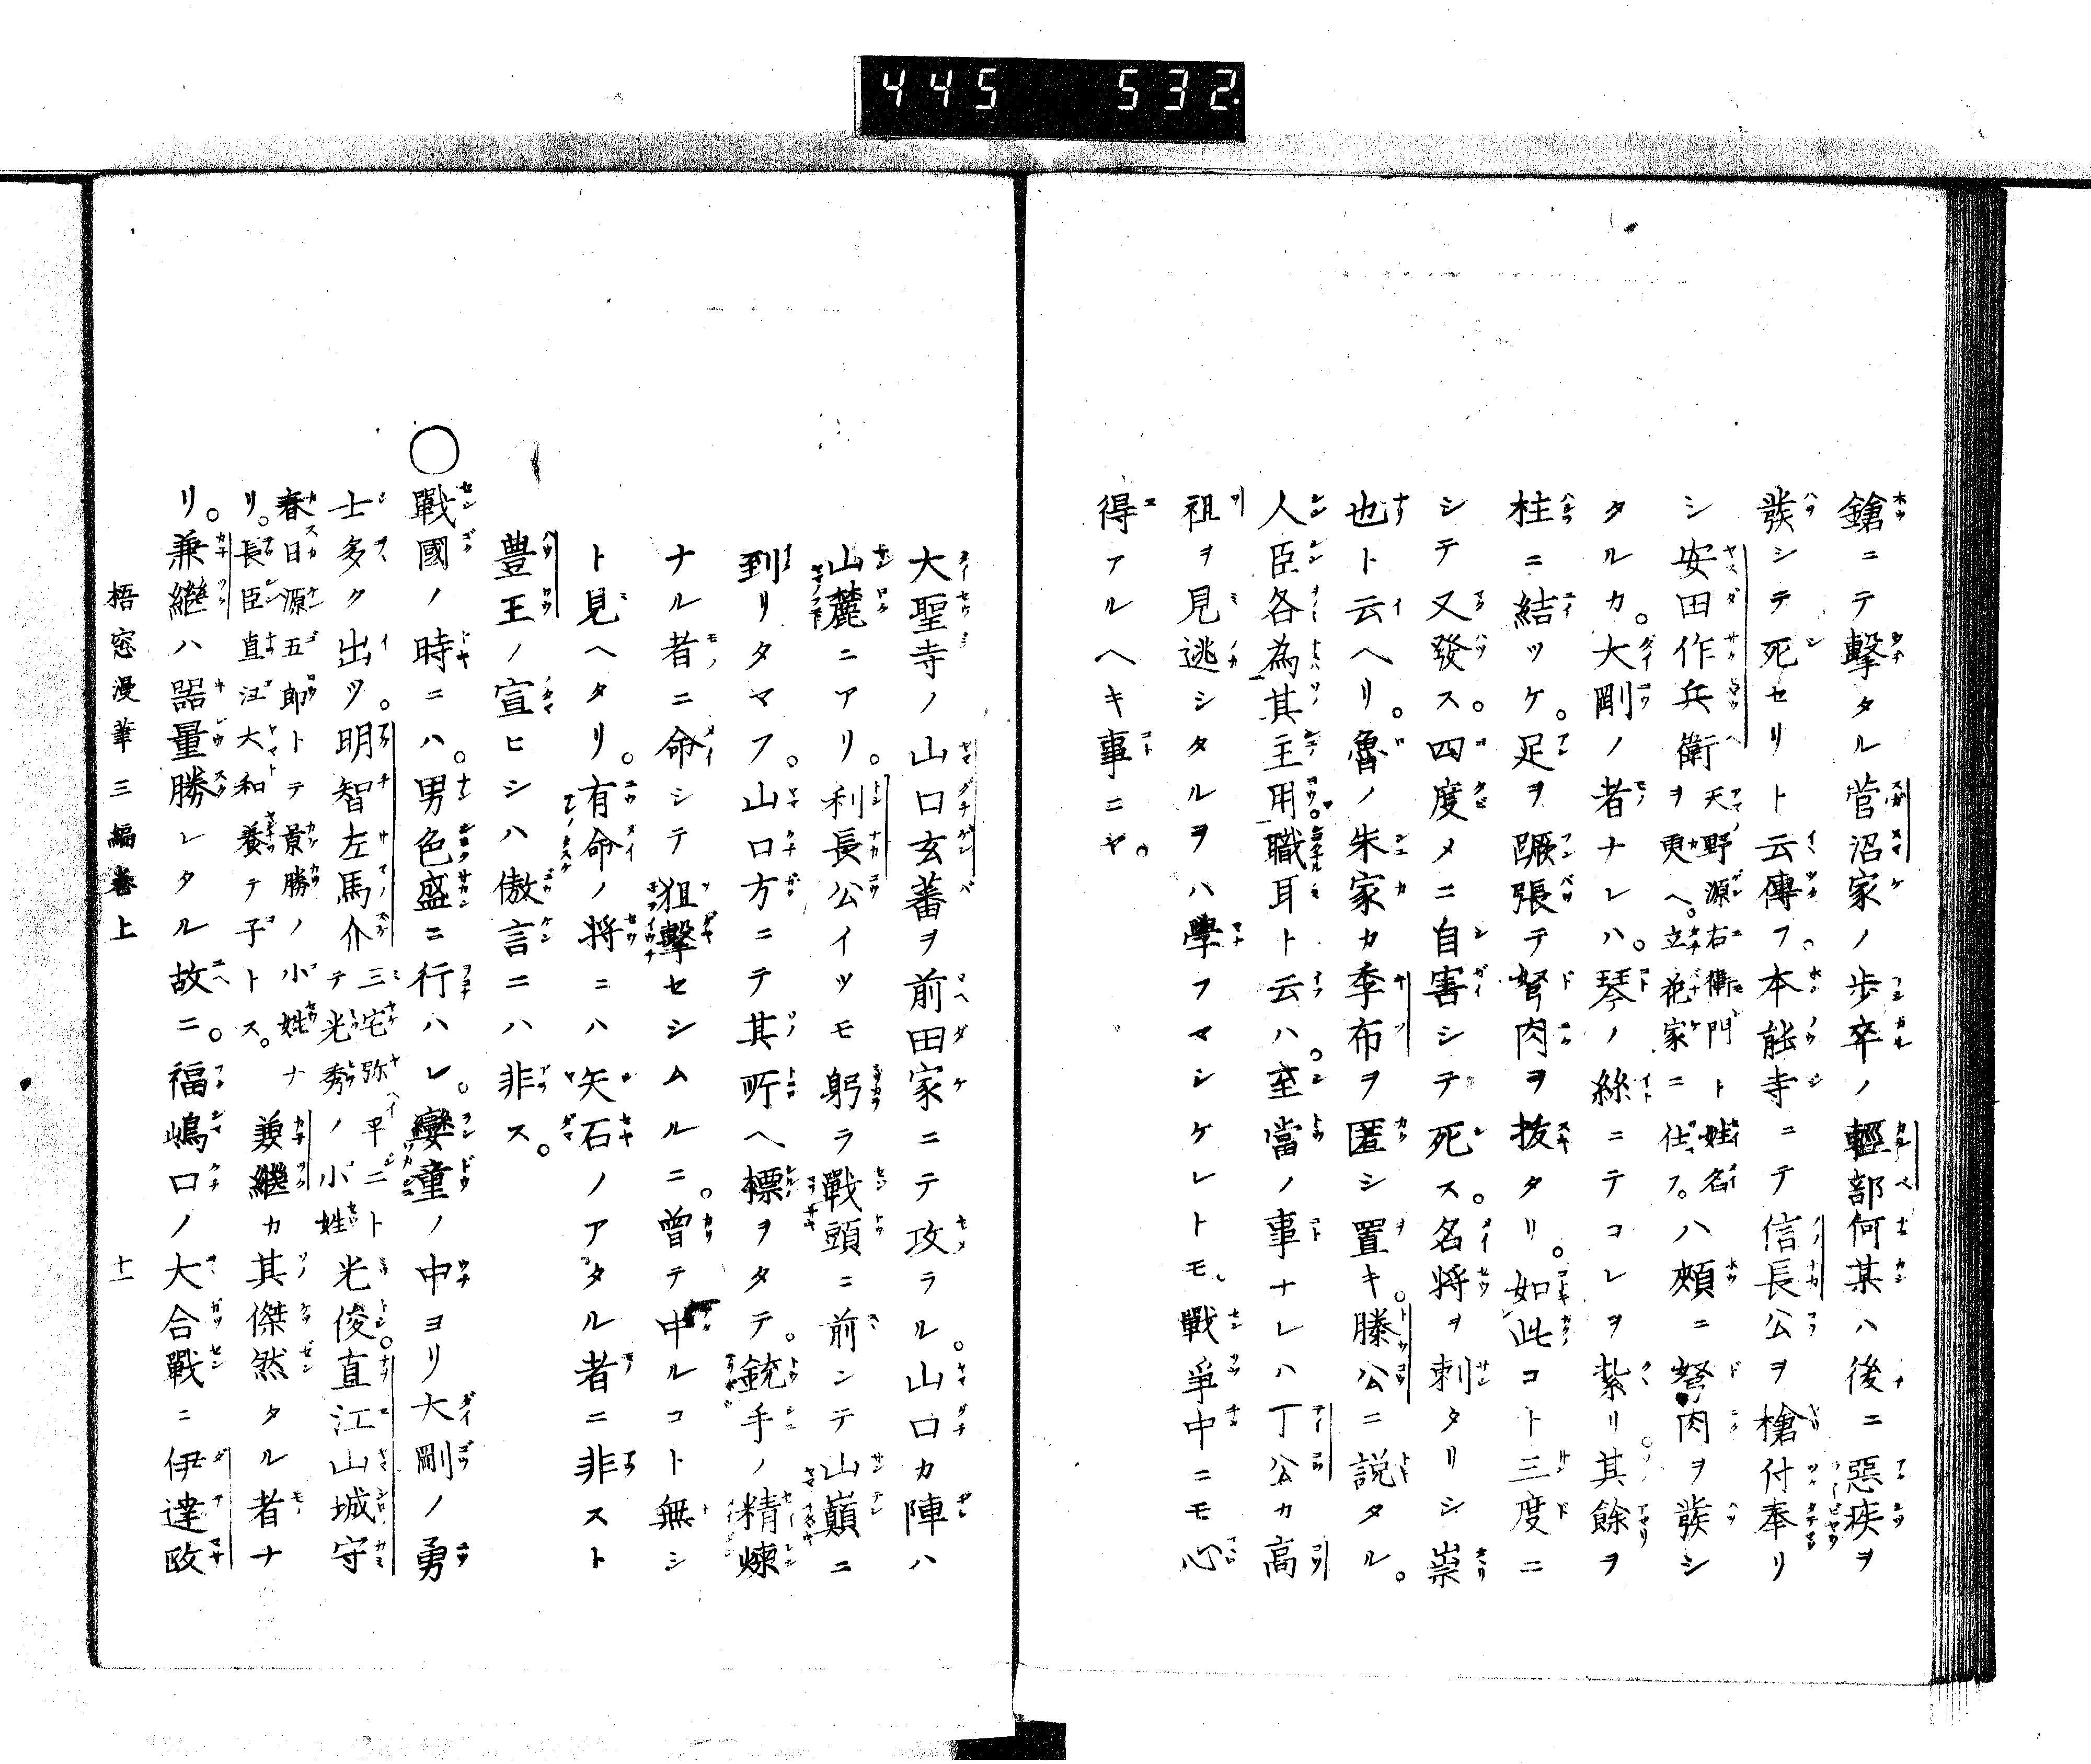 445 532.
鎗ニテ撃タル菅沼家ノ歩卒ノ輕部何某ハ後ニ惡疾ヲ
發シテ死セリト云傳フ、本能寺ニテ信長公ヲ槍付奉リ
シ安田作兵衛天野源右衛門ト姓名ヲ更ヘ。立花家ニ仕フ。ハ頰ニ努肉ヲ發シ
タルカ。大剛ノ者ナレハ。琴ノ絲ニテコレヲ紮リ。其餘ヲ
柱ニ結ツケ。足ヲ蹶張テ努肉ヲ拔タリ。如此コト三度ニ
シテ又發ス。四度メニ自害シテ死ス。名将ヲ刺タリシ崇
也ト云ヘリ。魯ノ朱家カ季布ヲ匿シ置キ。滕公ニ説タル。
人臣各為其主用。職耳ト云ハ。至當ノ事ナレハ丁公カ高
祖ヲ見逃シタルヲハ學フマシケレトモ、戰爭中ニモ心
得アルヘキ事ニヤ。
大聖寺ノ山口玄蕃ヲ前田家ニテ攻ラル。山口カ陣ハ
山麓ニアリ。利長公イツモ躬ラ戰頭ニ前ンテ山巓ニ
到リタマフ。山口方ニテ其所ヘ標ヲタテ。銃手ノ精煉
ナル者ニ命シテ狙擊セシムルニ。曾テ中ルコト無シ
ト見ヘタリ。有命ノ将ニハ矢石ノアタル者ニ非スト
豊王ノ宣ヒシハ傲言ニハ非ス。
○戰國ノ時ニハ。男色盛ニ行ハレ。孌童ノ中ヨリ大剛ノ勇
士多ク出ツ。明智左馬介三宅弥平ニトテ光秀ノ小姓光俊。直江山城守
春日源五郎トテ景勝ノ小姓ナリ。長臣直江大和養テ子トス。兼繼カ其傑然タル者ナ
リ。兼繼ハ器量勝レタル故ニ。福嶋口ノ大合戰ニ伊達政
梧窓漫筆三編卷上 十一